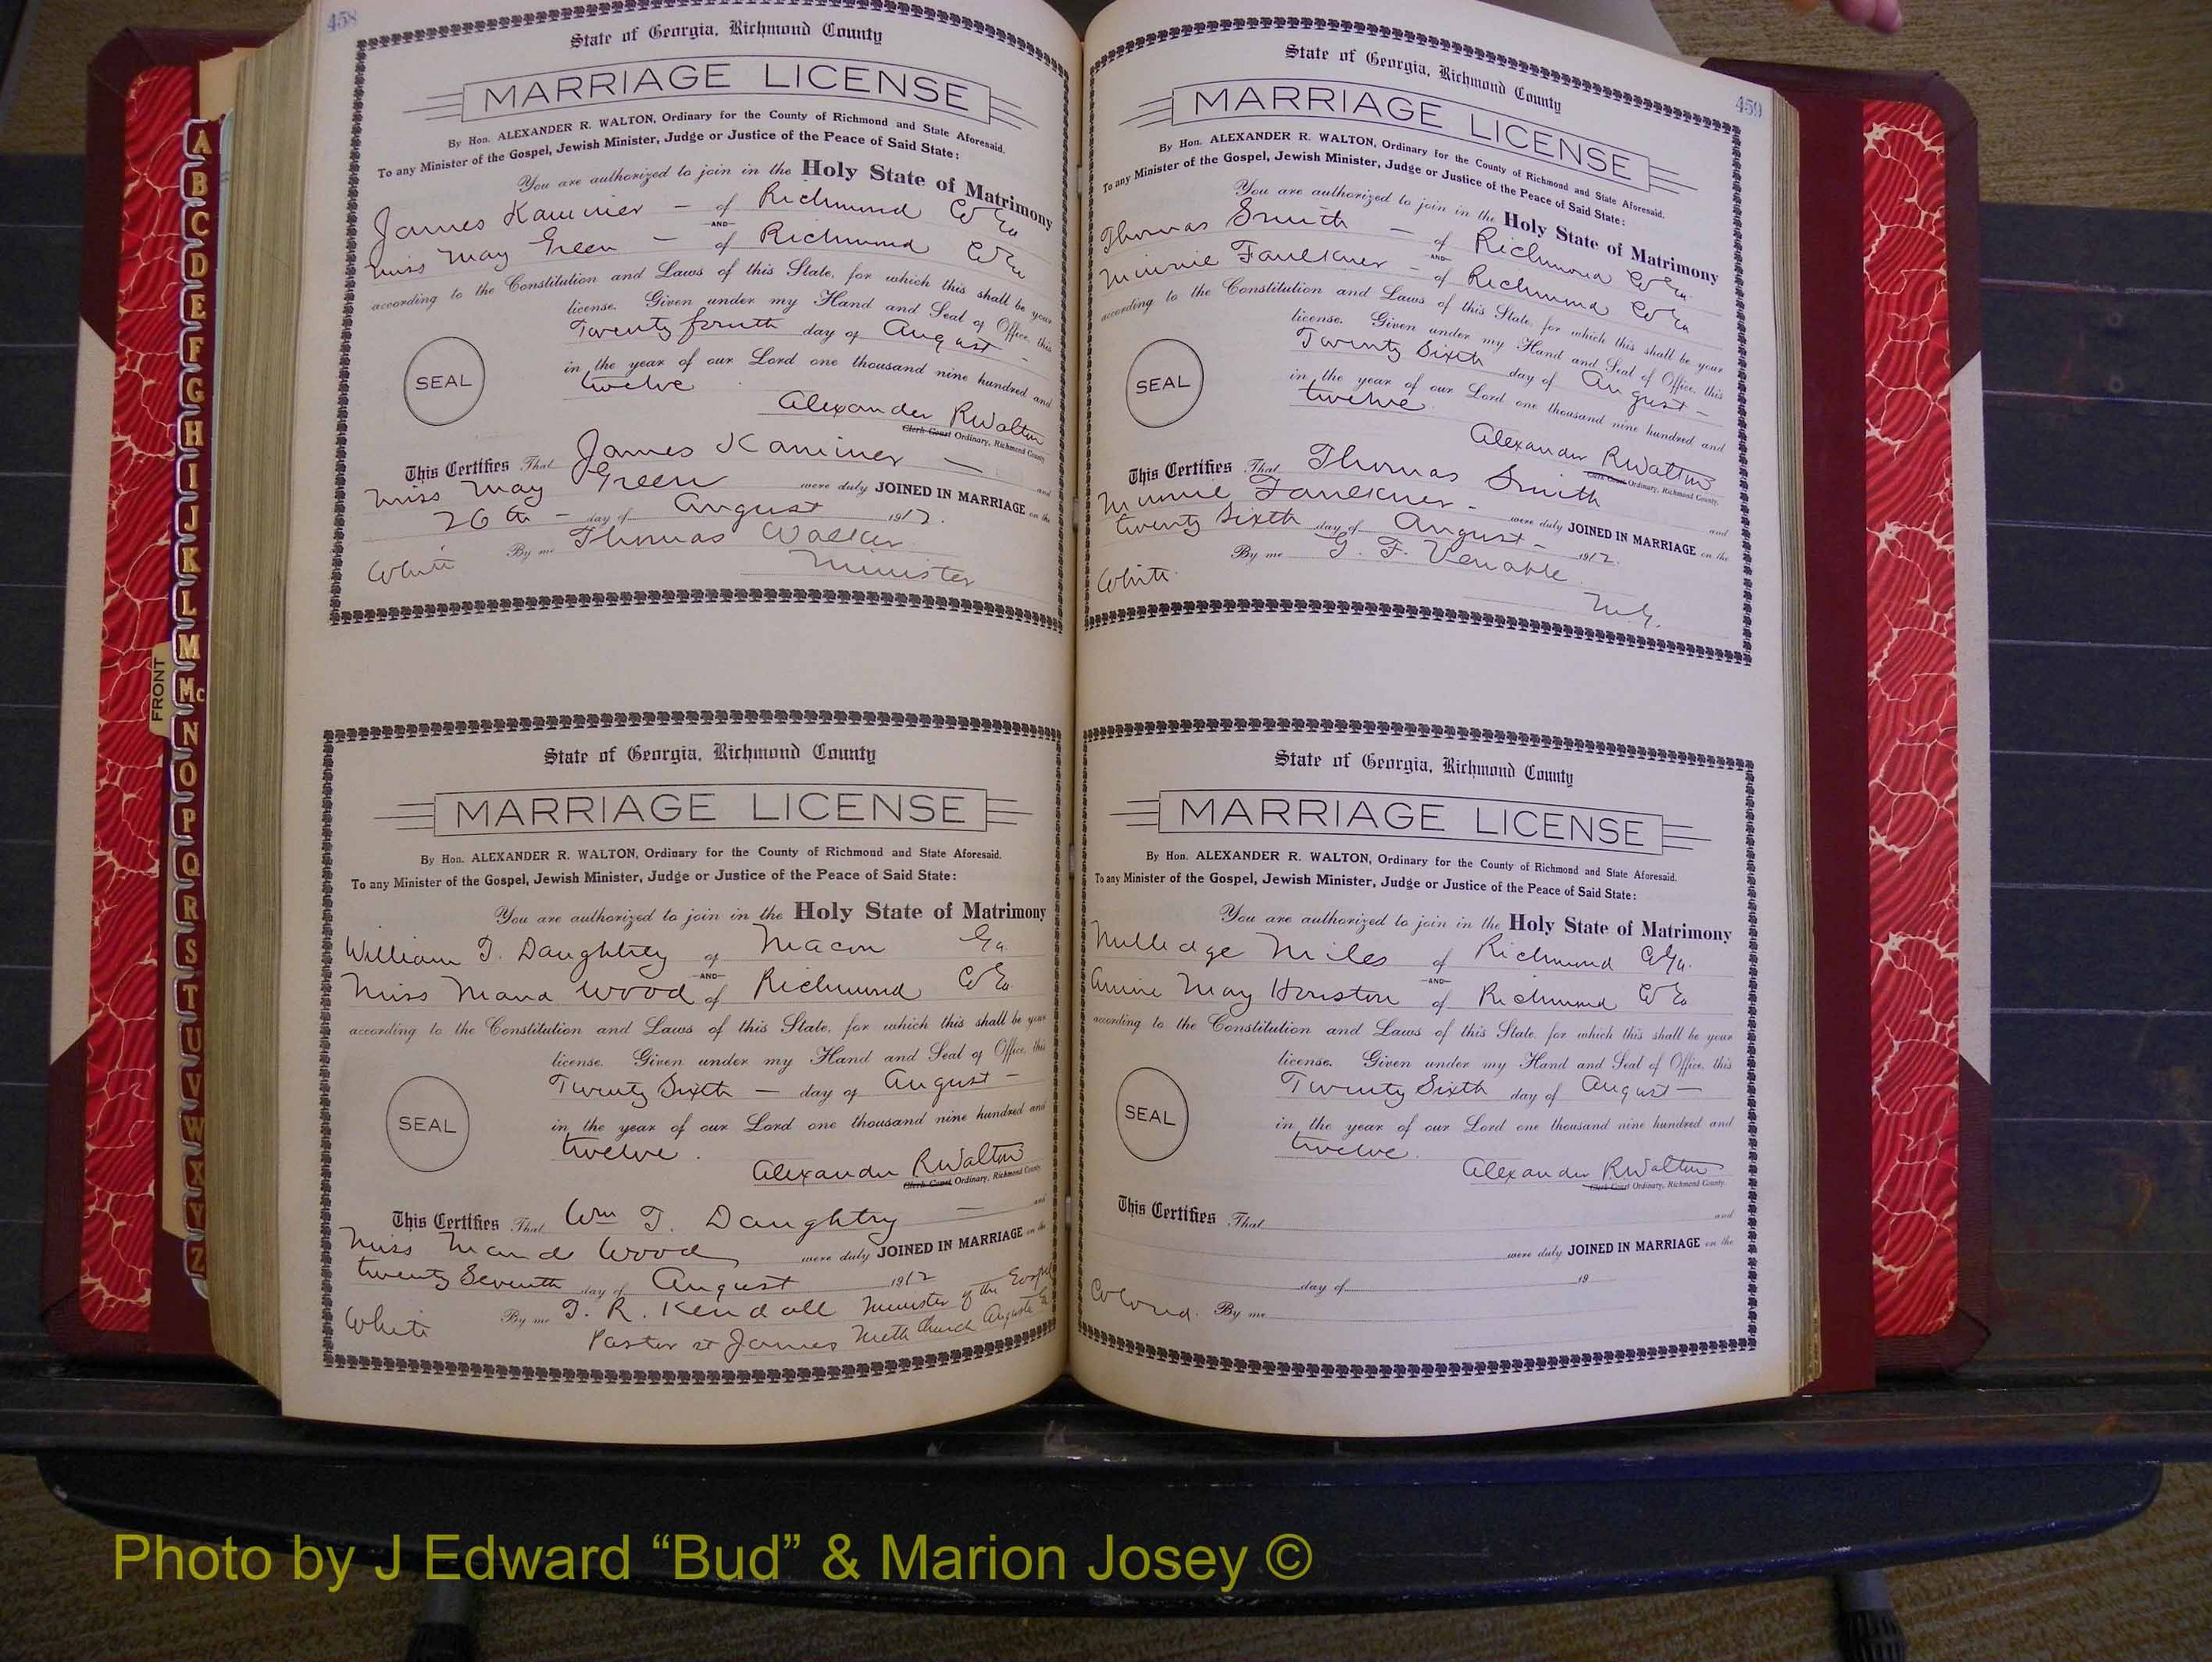 458
State of Georgia, Richmond County
MARRIAGE LICENSE
By Hon. ALEXANDER R. WALTON, Ordinary for the County of Richmond and State Aforesaid.
To any Minister of the Gospel, Jewish Minister, Judge or Justice of the Peace of Said State:
You are authorized to join in the Holy State of Matrimony
James Kaminer — of Richmond Co Ga
AND
Miss May Green — of Richmond Co Ga
according to the Constitution and Laws of this State, for which this shall be your
license. Given under my Hand and Seal of Office, this
Twenty fourth day of August —
in the year of our Lord one thousand nine hundred and
twelve
SEAL
Alexander R Walton
Clerk Court Ordinary, Richmond County
This Certifies That James Kaminer — and
Miss May Green were duly JOINED IN MARRIAGE on the
26th — day of August 1912.
By me Thomas Walker
White Minister
State of Georgia, Richmond County
MARRIAGE LICENSE
By Hon. ALEXANDER R. WALTON, Ordinary for the County of Richmond and State Aforesaid.
To any Minister of the Gospel, Jewish Minister, Judge or Justice of the Peace of Said State:
You are authorized to join in the Holy State of Matrimony
William T. Daughtrey of Macon Ga.
AND
Miss Maud Wood of Richmond Co Ga
according to the Constitution and Laws of this State, for which this shall be your
license. Given under my Hand and Seal of Office, this
Twenty Sixth — day of August —
in the year of our Lord one thousand nine hundred and
twelve.
SEAL
Alexander R Walton
Clerk Court Ordinary, Richmond County
This Certifies That Wm T. Daughtry — and
Miss Maud Wood were duly JOINED IN MARRIAGE on the
twenty Seventh day of August 1912
By me T. R. Kendall Minister of the Gospel
White Pastor St James Meth Church Augusta Ga
459
State of Georgia, Richmond County
MARRIAGE LICENSE
By Hon. ALEXANDER R. WALTON, Ordinary for the County of Richmond and State Aforesaid.
To any Minister of the Gospel, Jewish Minister, Judge or Justice of the Peace of Said State:
You are authorized to join in the Holy State of Matrimony
Thomas Smith — of Richmond Co Ga.
AND
Minnie Faulkner — of Richmond Co Ga
according to the Constitution and Laws of this State, for which this shall be your
license. Given under my Hand and Seal of Office, this
Twenty Sixth day of August —
in the year of our Lord one thousand nine hundred and
twelve.
SEAL
Alexander R Walton
Clerk Court Ordinary, Richmond County.
This Certifies That Thomas Smith and
Minnie Faulkner — were duly JOINED IN MARRIAGE on the
twenty Sixth day of August — 1912.
By me G. F. Venable
White. M.G.
State of Georgia, Richmond County
MARRIAGE LICENSE
By Hon. ALEXANDER R. WALTON, Ordinary for the County of Richmond and State Aforesaid.
To any Minister of the Gospel, Jewish Minister, Judge or Justice of the Peace of Said State:
You are authorized to join in the Holy State of Matrimony
Milledge Miles of Richmond Co Ga.
AND
Annie May Houston of Richmond Co Ga
according to the Constitution and Laws of this State, for which this shall be your
license. Given under my Hand and Seal of Office, this
Twenty Sixth day of August —
in the year of our Lord one thousand nine hundred and
twelve.
SEAL
Alexander R Walton
Clerk Court Ordinary, Richmond County
This Certifies That and
were duly JOINED IN MARRIAGE on the
day of 19
Colored. By me
A
B
C
D
E
F
G
H
I
J
K
L
M
Mc
N
O
P
Q
R
S
T
U
V
W
X
Y
Z
FRONT
Photo by J Edward “Bud” & Marion Josey ©